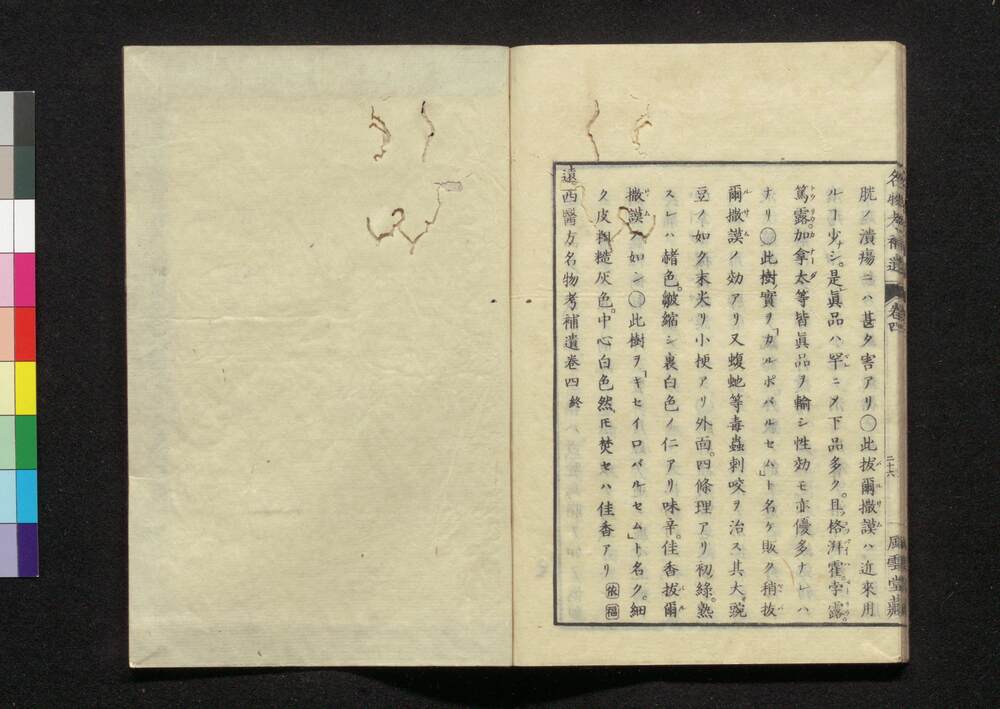 名物考補遺 卷四 二十六 風雲堂藏
胱ノ潰瘍ニハ甚タ害アリ〇此拔爾撒謨ハ近來用
ルヿ少シ。是眞品ハ罕ニメ下品多ク。且格湃霍。孛露。
篤露。加拿太等皆眞品ヲ輸シ性効モ亦優多ナレハ
ナリ〇此樹實ヲ「カルポバルセム」ト名ケ販ク稍拔
爾撒謨ノ効アリ又蝮虵等毒蟲刺咬ヲ治ス其大豌
豆ノ如ク末尖リ小梗アリ外面。四條理アリ初綠。熟
スレハ赭色。皺縮シ裏白色ノ仁アリ味辛。佳香拔爾
撒謨ノ如シ〇此樹ヲ「キセイロバルセム」ト名ク。細
ク皮糙灰色。中心白色然𪜈焚セハ佳香アリ 依福
遠西醫方名物考補遺卷四終